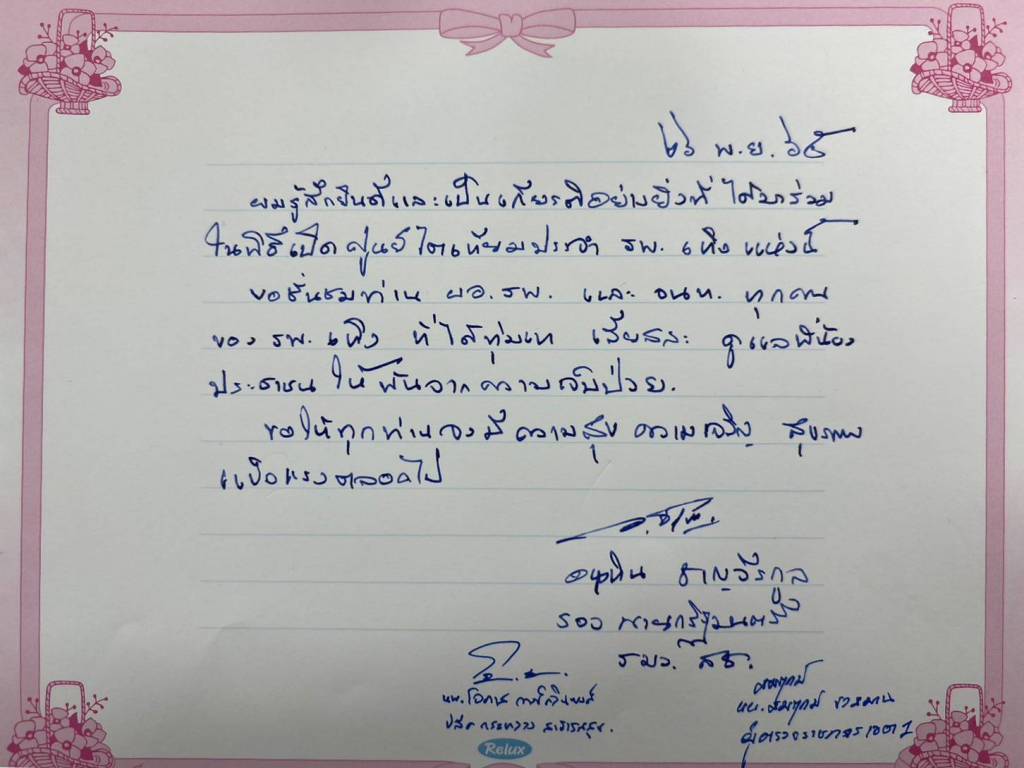 ๒๖ พ.ย. ๖๕
ผมรู้สึกยินดีและเป็นเกียรติอย่างยิ่งที่ ได้มาร่วม
ในพิธีเปิดศูนย์ไตเทียมประจำ รพ. เทิง แห่งนี้
ขอชื่นชมท่าน ผอ. รพ. และ จนท. ทุกคน
ของ รพ. เทิง ที่ได้ทุ่มเท เสียสละ ดูแลพี่น้อง
ประชาชน ให้พ้นจากความเจ็บป่วย.
ขอให้ทุกท่านจงมีความสุข ความเจริญ สุขภาพ
แข็งแรงตลอดไป
อนุทิน ชาญวีรกูล
รองนายกรัฐมนตรี
รมว. สธ.
นพ. โอภาส การย์กวินพงศ์
ปลัดกระทรวง สาธารณสุข.
นพ.
ผู้ตรวจราชการเขต 1
Relux